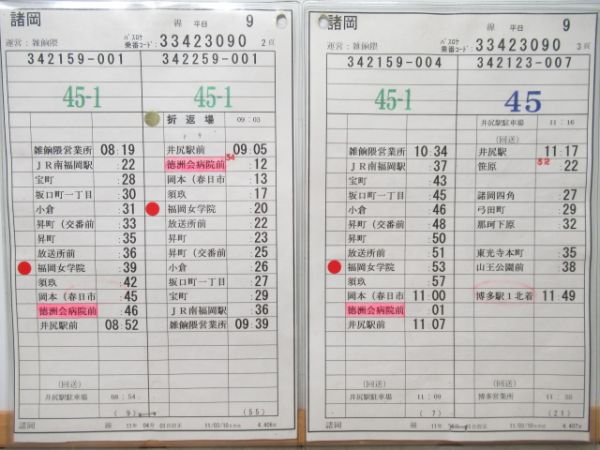 諸岡 線 平日 9
運営：雑餉隈 バスロケ 乗番コード： 33423090 2頁
342159-001 342259-001
45-1 45-1
折返場 09:03
雑餉隈営業所 08:19
JR南福岡駅 :22
宝町 :28
坂口町一丁目 :30
小倉 :31
昇町(交番前 :33
昇町 :35
放送所前 :36
福岡女学院 :39
須玖 :42
岡本(春日市 :45
徳洲会病院前 :46
井尻駅前 08:52
(回送)
井尻駅駐車場 08:54
(9)
井尻駅前 09:05
徳洲会病院前 :12
岡本(春日市 :13
須玖 :17
福岡女学院 :20
放送所前 :22
昇町 :23
昇町(交番前 :25
小倉 :26
坂口町一丁目 :27
宝町 :29
JR南福岡駅 :36
雑餉隈営業所 09:39
(55)
諸岡 線 11年 04月 01日改正 11/03/10 4.406
諸岡 線 平日 9
運営：雑餉隈 バスロケ 乗番コード： 33423090 3頁
342159-004 342123-007
45-1 45
雑餉隈営業所 10:34
JR南福岡駅 :37
宝町 :43
坂口町一丁目 :45
小倉 :46
昇町(交番前 :48
昇町 :50
放送所前 :51
福岡女学院 :53
須玖 :57
岡本(春日市 11:00
徳洲会病院前 :01
井尻駅前 11:07
(回送)
井尻駅駐車場 11:09
(7)
井尻駅駐車場 11:16
(回送)
井尻駅 11:17
笹原 :22
諸岡四角 :27
弓田町 :29
那珂下原 :32
東光寺本町 :35
山王公園前 :38
博多駅1北着 11:49
(回送)
博多営業所
(21)
諸岡 線 11年 11/03/10 4.407